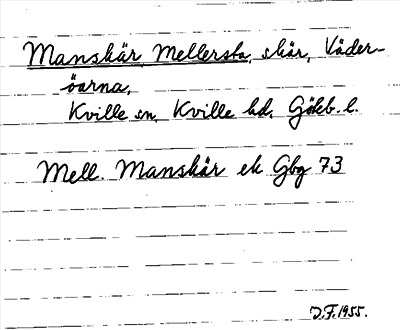 Manskär, Mellersta, skär, Väder-
öarna,
Kville sn, Kville hd, Göteb. l.
Mell. Manskär ek Gbg 73
D.F. 1955.